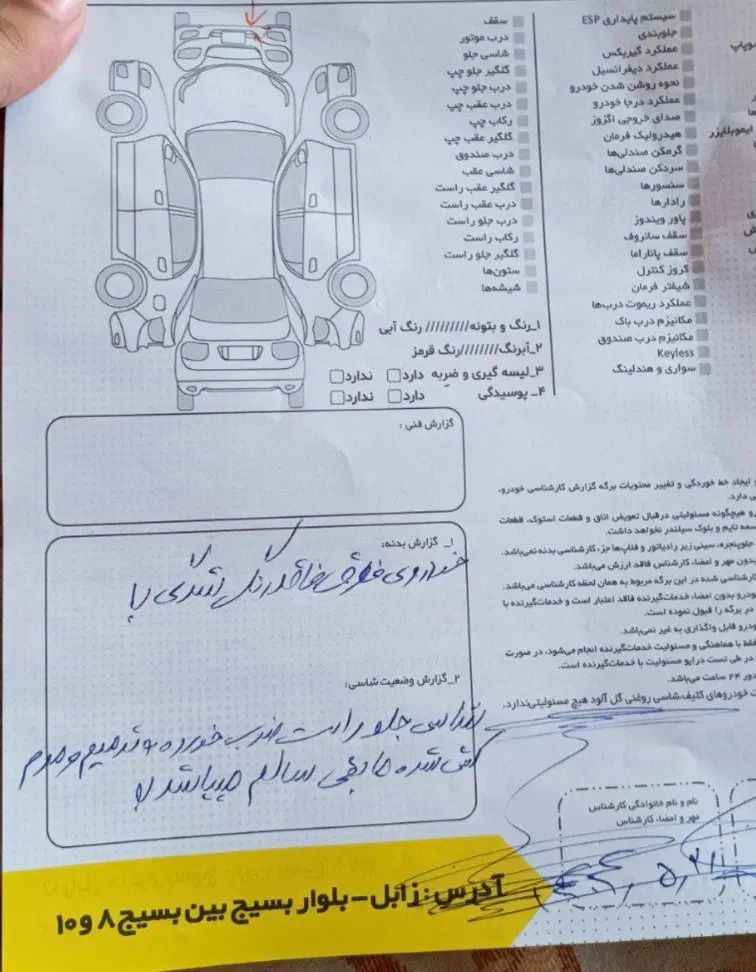 سیستم پایداری ESP
جلوبندی
عملکرد گیربکس
عملکرد دیفرانسیل
نحوه روشن شدن خودرو
عملکرد درجا خودرو
صدای خروجی اگزوز
هیدرولیک فرمان
گرمکن صندلی‌ها
سردکن صندلی‌ها
سنسورها
رادارها
پاور ویندوز
سقف سانروف
سقف پاناراما
کروز کنترل
شیفتر فرمان
عملکرد ریموت درب‌ها
مکانیزم درب باک
مکانیزم درب صندوق
Keyless
سواری و هندلینگ
ایموبلایزر
سقف
درب موتور
شاسی جلو
گلگیر جلو چپ
درب جلو چپ
درب عقب چپ
رکاب چپ
گلگیر عقب چپ
درب صندوق
شاسی عقب
گلگیر عقب راست
درب عقب راست
درب جلو راست
رکاب راست
گلگیر جلو راست
ستون‌ها
شیشه‌ها
۱_رنگ و بتونه///////// رنگ آبی
۲_آبرنگ////////رنگ قرمز
۳_ لیسه گیری و ضربه دارد ندارد
۴_ پوسیدگی دارد ندارد
گزارش فنی :
۱_ گزارش بدنه:
خودروی فوق فاقد رنگ شدگی
۲_گزارش وضعیت شاسی:
شاسی جلو راست ضرب خورده و ترمیم و مرم
کشی شده مابقی سالم میباشد
و ایجاد خط خوردگی و تغییر محتویات برگه گزارش کارشناسی خودرو،
دارد.
هیچگونه مسئولیتی درقبال تعویض اتاق و قطعات استوک، قطعات
تسمه تایم و بلوک سیلندر نخواهد داشت.
جلوپنجره، سینی زیر رادیاتور و فلاپ‌ها جز، کارشناسی بدنه نمی‌باشد.
بدون مهر و امضا، کارشناس فاقد ارزش می‌باشد.
کارشناسی شده در این برگه مربوط به همان لحظه کارشناسی می‌باشد.
بدون امضا، خدمات‌گیرنده فاقد اعتبار است و خدمات‌گیرنده با
در برگه را قبول نموده است.
قابل واگذاری به غیر نمی‌باشد.
فقط با هماهنگی و مسئولیت خدمات‌گیرنده انجام می‌شود، در صورت
در طی تست درایو مسئولیت با خدمات‌گیرنده است.
۲۴ ساعت می‌باشد.
خودروهای کثیف،شاسی روغنی گل آلود هیچ مسئولیتی‌ندارد.
نام و نام خانوادگی کارشناس
مهر و امضا، کارشناس
آدرس: زابل-بلوار بسیج بین بسیج ۸ و ۱۰